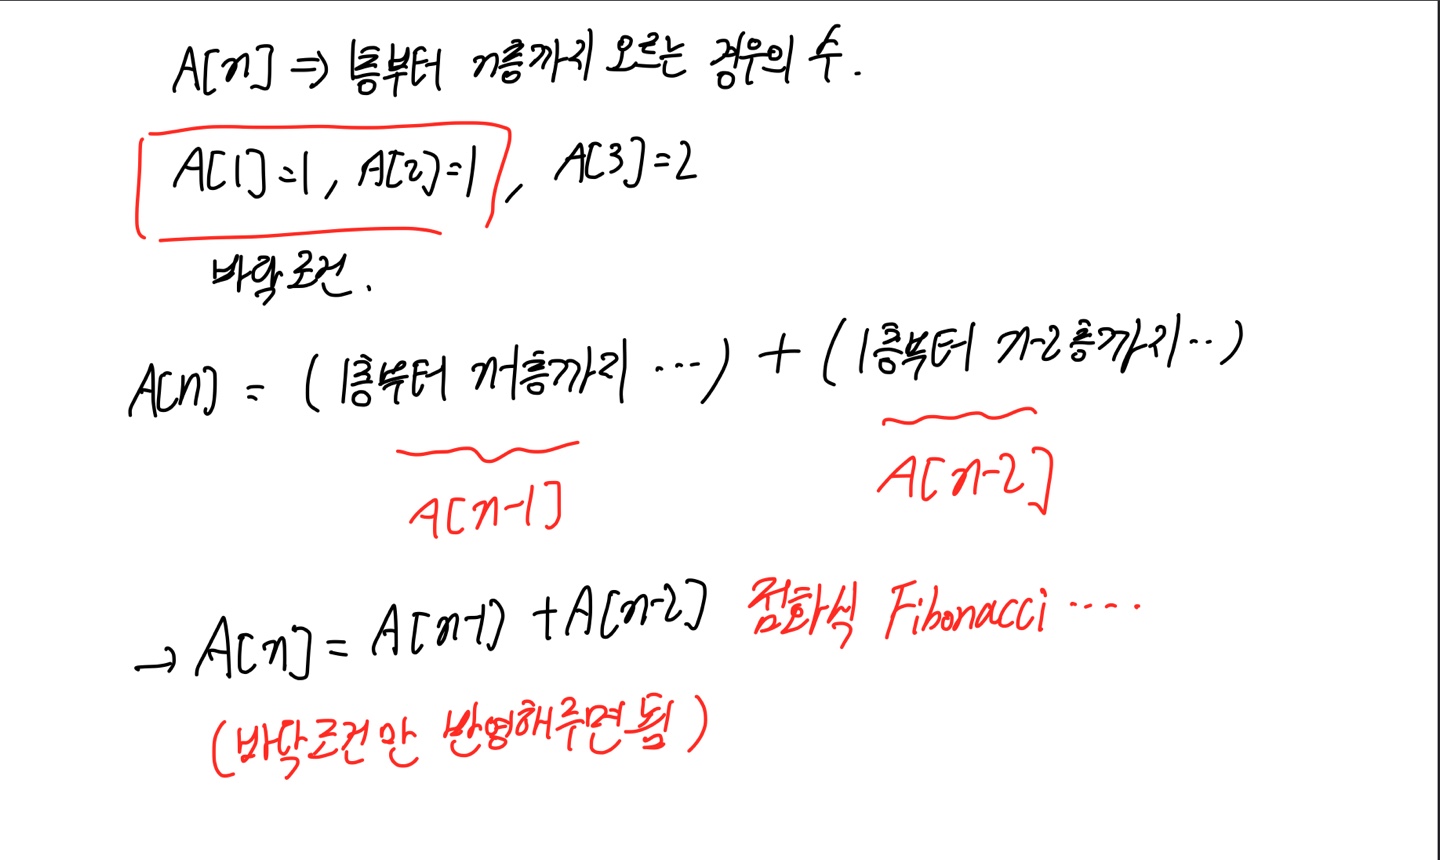 A[n] ⇒ 1층부터 n층까지 오르는 경우의 수.
A[1]=1, A[2]=1, A[3]=2
바닥조건.
A[n] = (1층부터 n-1층까지 ...) + (1층부터 n-2층까지 ...)
A[n-1] A[n-2]
→ A[n] = A[n-1] + A[n-2] 점화식 Fibonacci ....
(바닥조건만 반영해주면 됨)